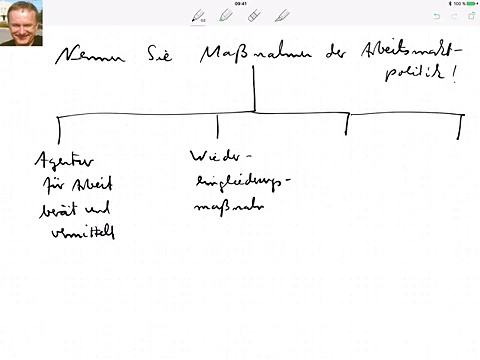 09:41
100 %
Nennen Sie Maßnahmen der Arbeitsmarkt-
politik!
Agentur
für Arbeit
berät und
vermittelt
Wieder-
eingliederungs-
maßnahm